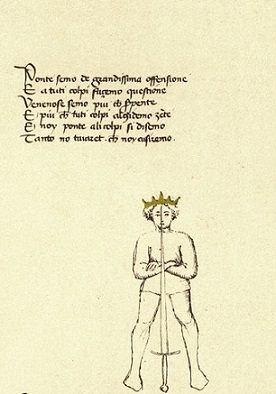 Ponte semo de grandissima offensione
E a tuti colpi façemo questione
Venenose semo piu ch serpente
E piu ch tuti colpi alcidemo zēte
E noy ponte ali colpi si diseno
Tanto no taiaret ch noy cusiremo.